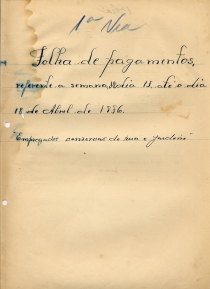 1ª Via
Folha de pagamentos,
referente a semana, do dia 13. até o dia
18 de Abril de 1936.
Empregados conservas de rua e jardins